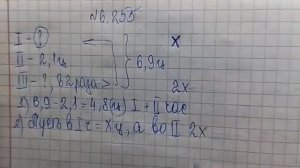 №6.255
I - ? x
II - 2,1ц 6,9ц
III - ?, в 2 раза > 2x
1) 6,9 - 2,1 = 4,8 (ц) I + II час
2) Пусть в I ч = x ц, а во II 2x